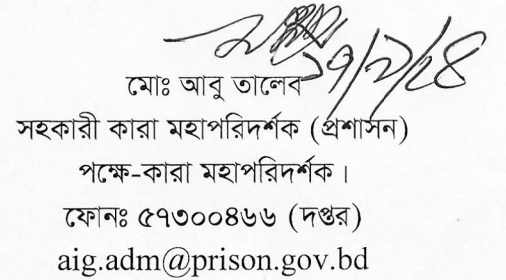 মোঃ আবু তালেব
সহকারী কারা মহাপরিদর্শক (প্রশাসন)
পক্ষে-কারা মহাপরিদর্শক।
ফোনঃ ৫৭৩০০৪৬৬ (দপ্তর)
aig.adm@prison.gov.bd